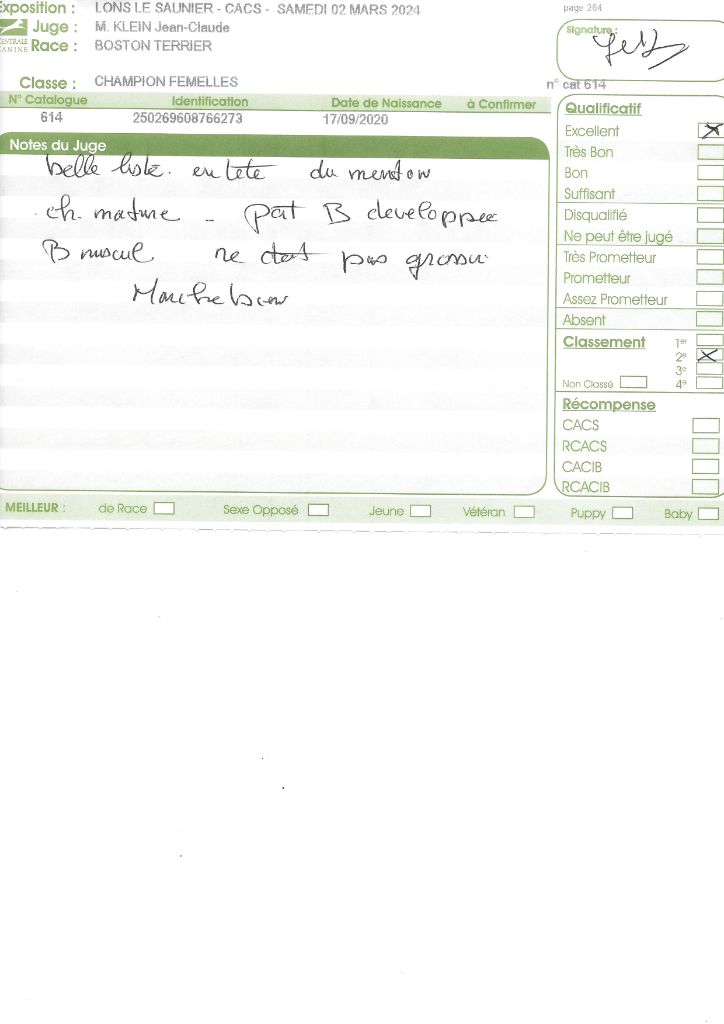 Exposition : LONS LE SAUNIER - CACS - SAMEDI 02 MARS 2024
page 264
Juge : M. KLEIN Jean-Claude
Signature :
CENTRALE CANINE
Race : BOSTON TERRIER
Classe : CHAMPION FEMELLES
n° cat 614
N° Catalogue Identification Date de Naissance à Confirmer
614 250269608766273 17/09/2020
Notes du Juge
belle liste. en tete du menton
ch. mature - poit B developpee
B muscul ne doit pas grossir
Marche bien
Qualificatif
Excellent
Très Bon
Bon
Suffisant
Disqualifié
Ne peut être jugé
Très Prometteur
Prometteur
Assez Prometteur
Absent
Classement 1er
2e
3e
Non Classé 4e
Récompense
CACS
RCACS
CACIB
RCACIB
MEILLEUR : de Race Sexe Opposé Jeune Vétéran Puppy Baby